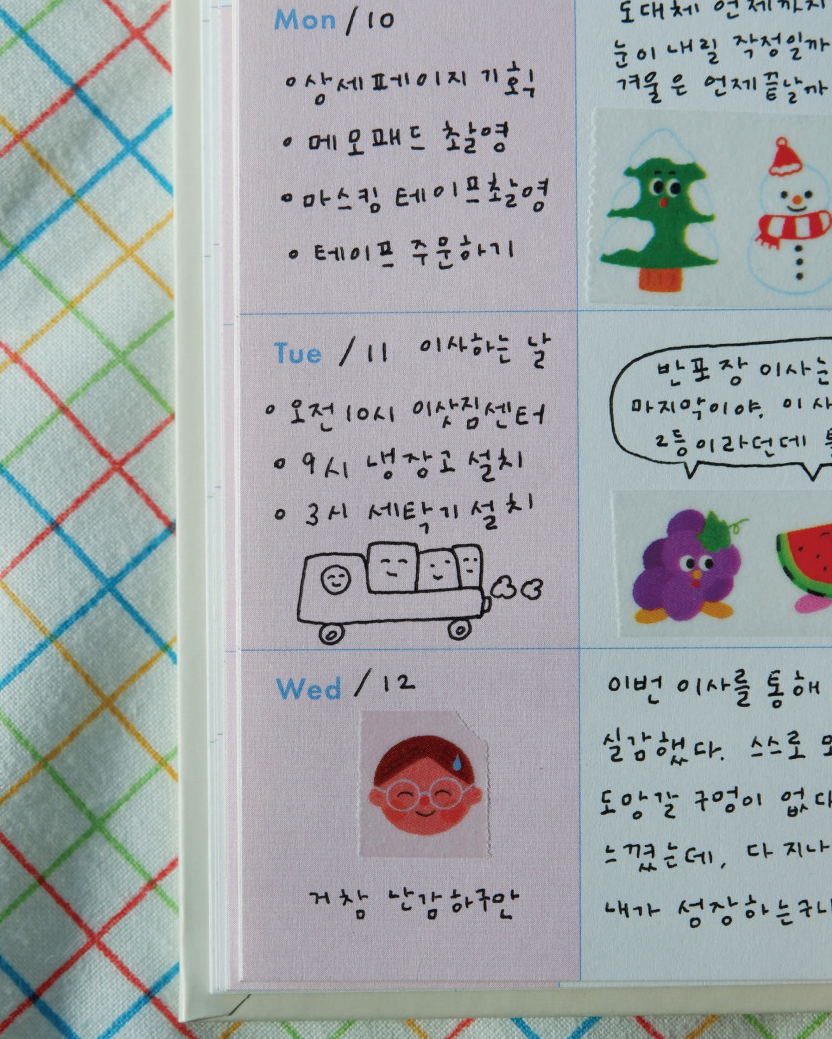 Mon / 10
• 상세페이지 기획
• 메모패드 촬영
• 마스킹 테이프 촬영
• 테이프 주문하기
도대체 언제까지
눈이 내릴 작정일까
겨울은 언제 끝날까
Tue / 11 이사하는 날
• 오전 10시 이삿짐센터
• 9시 냉장고 설치
• 3시 세탁기 설치
반포장 이사는
마지막이야, 이사
2등이라던데
Wed / 12
거참 난감하구만
이번 이사를 통해
실감했다. 스스로
도망갈 구멍이 없다
느꼈는데, 다 지나
내가 성장하는구나